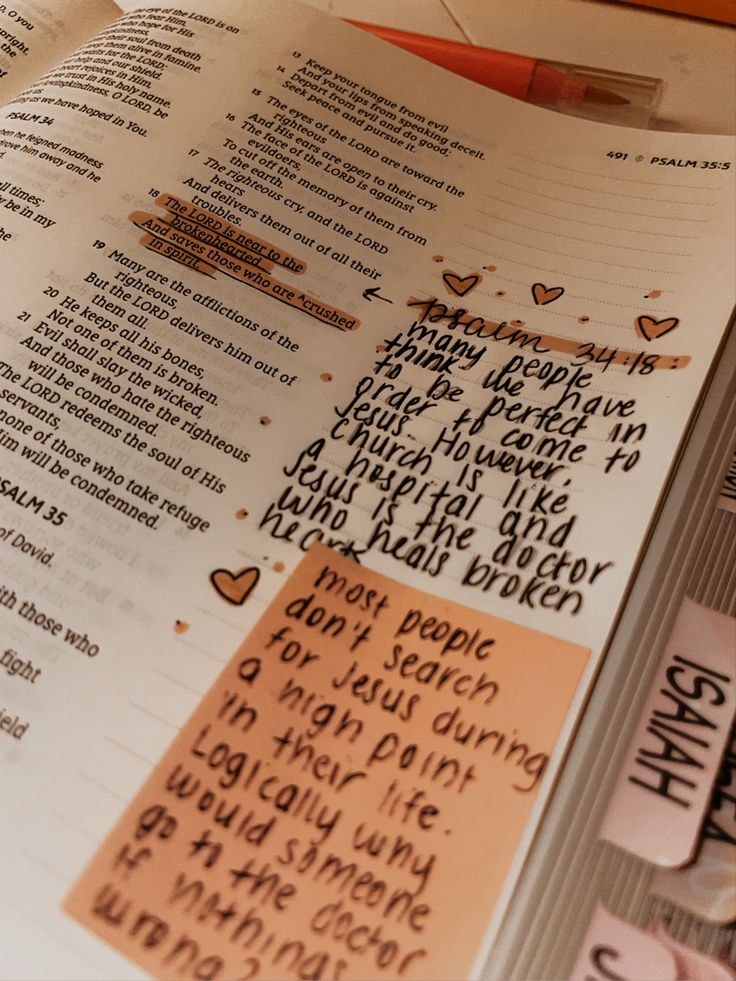 O you
upright.
the
eye of the LORD is on
who fear Him,
who hope for His
their soul from death
keep them alive in famine.
waits for the LORD:
help and our shield.
heart rejoices in Him,
we trust in His holy name.
lovingkindness, O LORD, be
us,
as we have hoped in You.
PSALM 34
when he feigned madness
drove him away and he
all times;
be in my
13 Keep your tongue from evil
And your lips from speaking deceit.
14 Depart from evil and do good;
Seek peace and pursue it.
15 The eyes of the LORD are toward the
righteous
And His ears are open to their cry.
16 The face of the LORD is against
evildoers,
To cut off the memory of them from
the earth.
17 The righteous cry, and the LORD
hears
And delivers them out of all their
troubles.
18 The LORD is near to the
brokenhearted
And saves those who are crushed
in spirit.
19 Many are the afflictions of the
righteous,
But the LORD delivers him out of
them all.
20 He keeps all his bones,
Not one of them is broken.
21 Evil shall slay the wicked,
And those who hate the righteous
will be condemned.
The LORD redeems the soul of His
servants,
none of those who take refuge
Him will be condemned.
PSALM 35
of David.
with those who
fight
491 PSALM 35:5
psalm 34:18:
many people
think we have
to be perfect in
order to come to
Jesus. However,
church is like
a hospital and
Jesus is the doctor
who heals broken
hearts
most people
don't search
for Jesus during
a high point
in their life.
Logically why
would someone
go to the doctor
if nothings
wrong?
ISAIAH